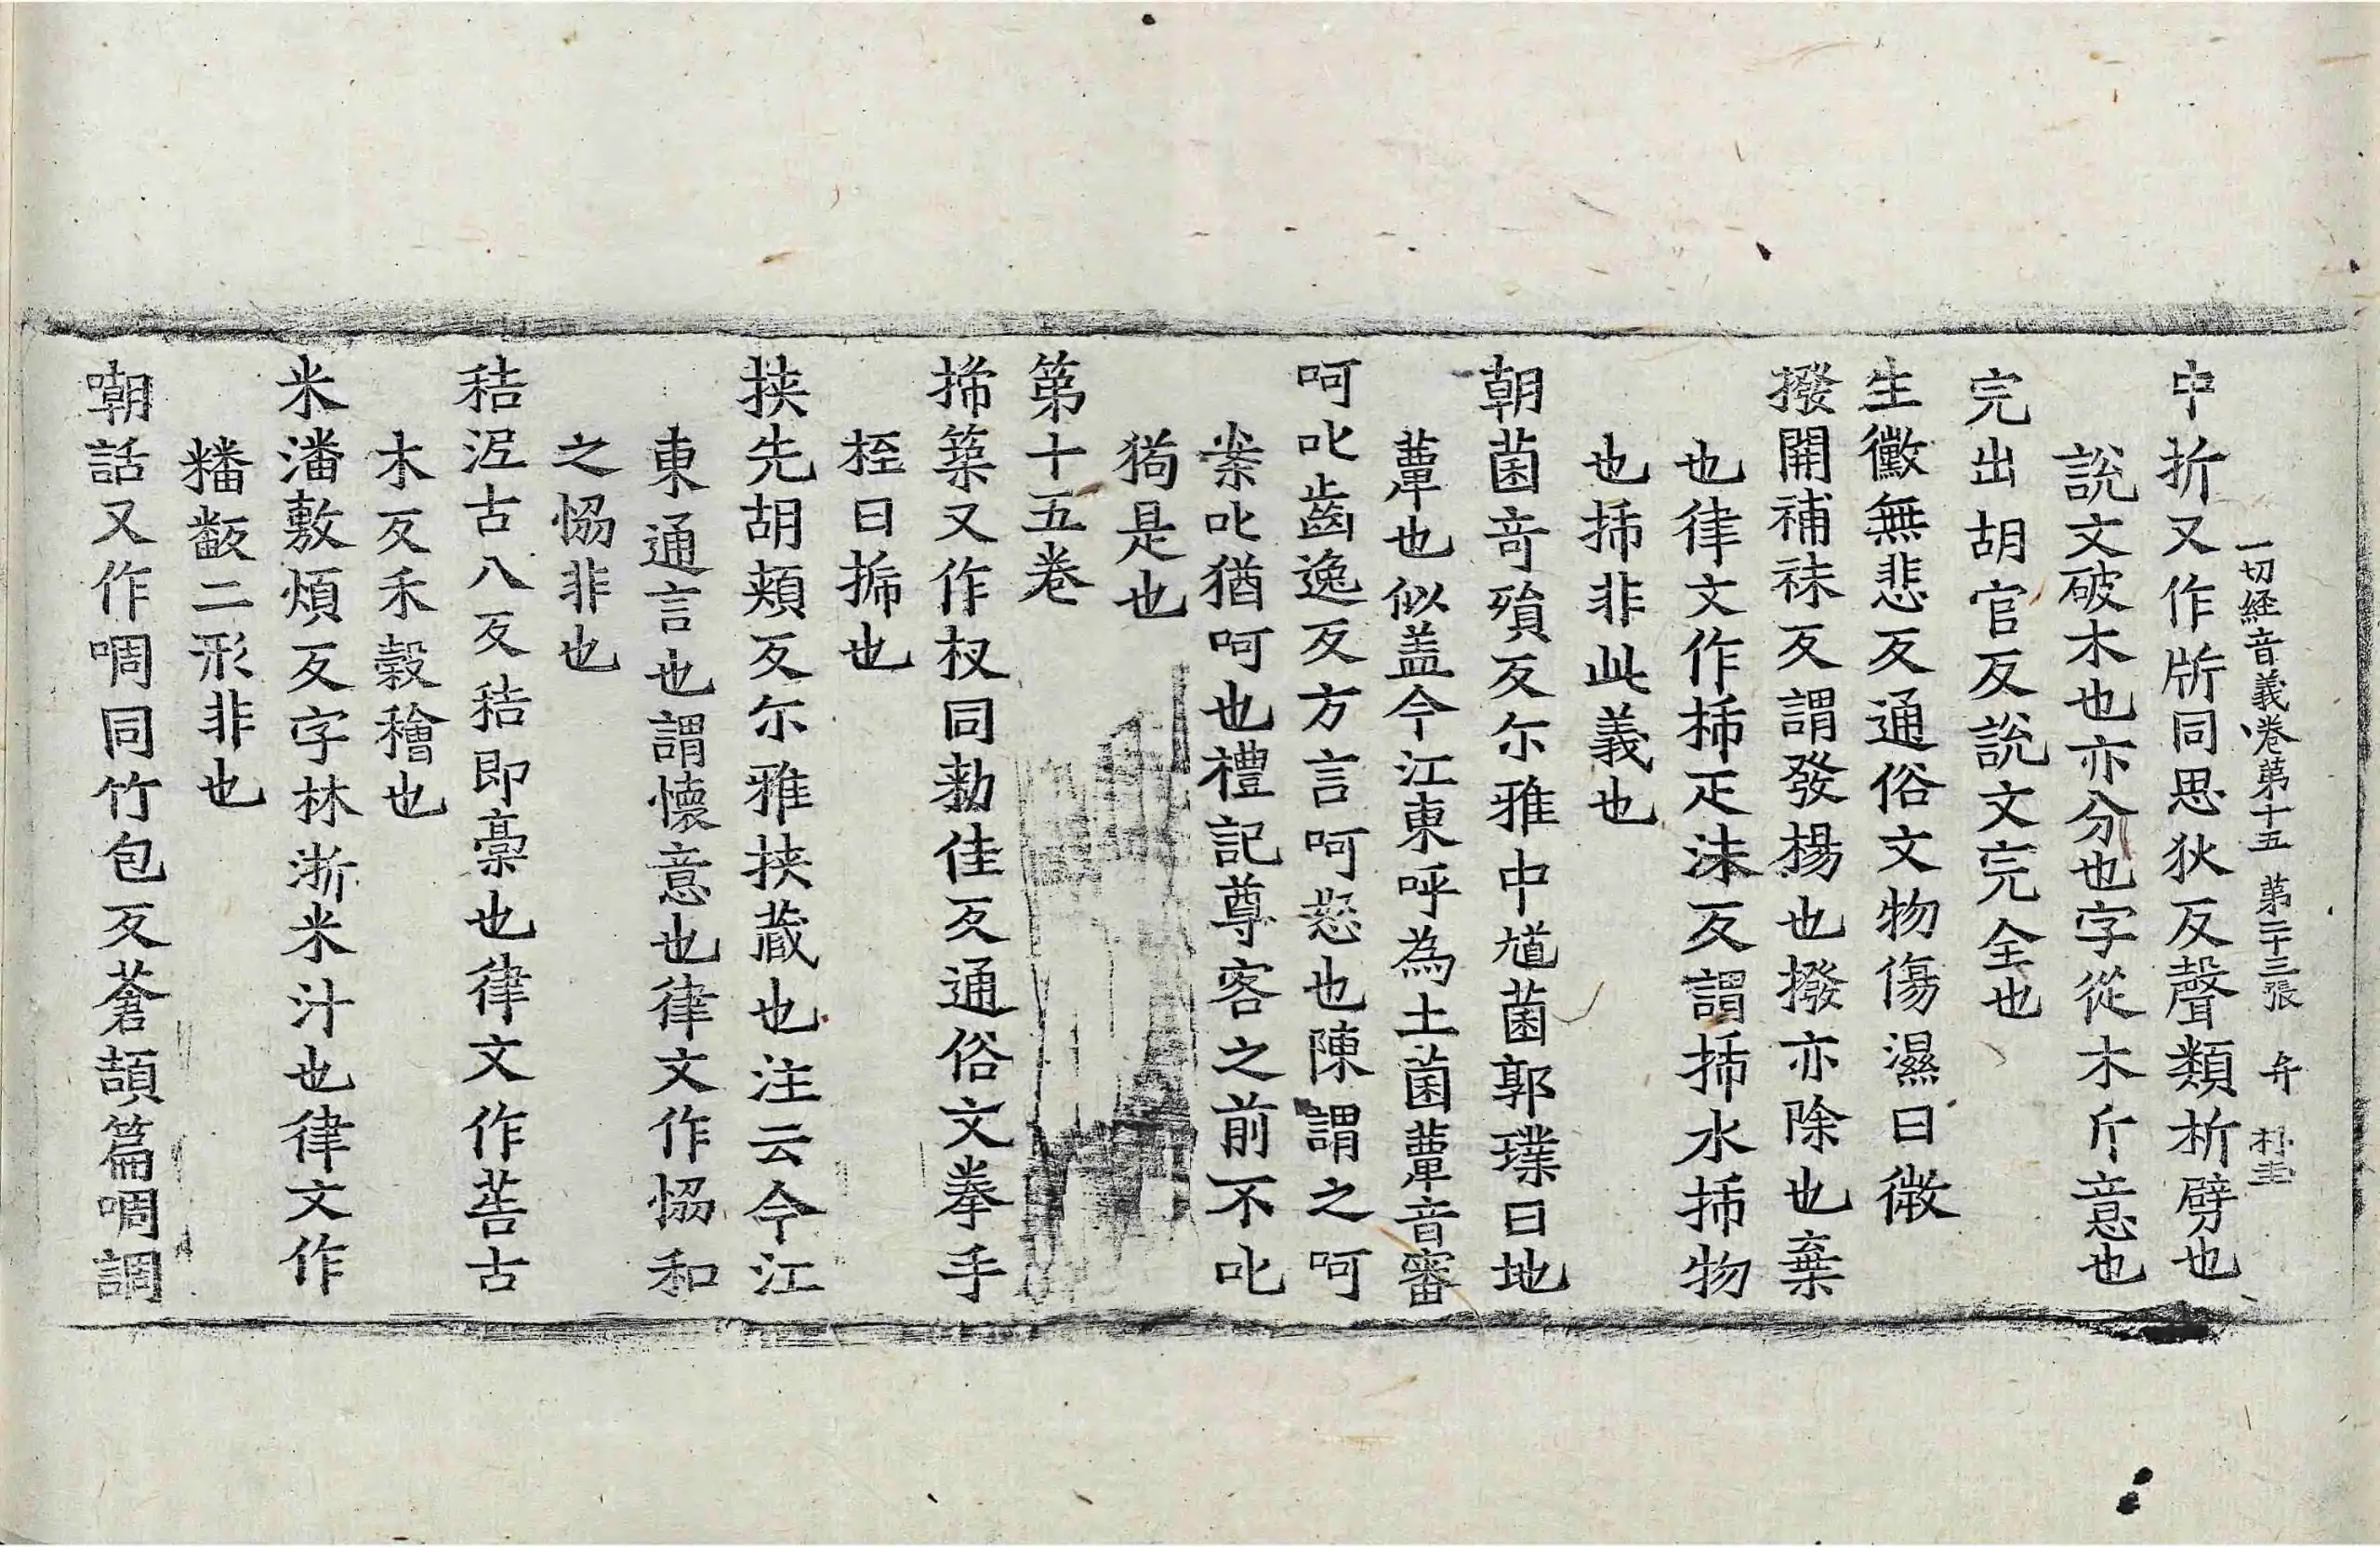 一切経音義卷第十五 第二十三張 弁 朴圭
中折又作㪿同思狄反聲類析劈也
說文破木也亦分也字從木斤意也
完出胡官反說文完全也
生黴無悲反通俗文物傷濕曰黴
撥開補秣反謂發揚也撥亦除也棄
也律文作柿疋沬反謂柿水柿物
也柿非此義也
朝菌竒殞反尒雅中馗菌郭璞曰地
蕈也似盖今江東呼為土菌蕈音審
呵叱齒逸反方言呵怒也陳謂之呵
案叱猶呵也禮記尊客之前不叱
狗是也
第十五卷
搋築又作杈同勑佳反通俗文拳手
挃曰搋也
挾先胡頰反尒雅挾蔵也注云今江
東通言也謂懷意也律文作恊和
之恊非也
秸泥古八反秸即槀也律文作䓤古
木反禾穀稽也
米潘敷煩反字林淅米汁也律文作
𥻦䉒二形非也
嘲話又作啁同竹包反蒼頡篇啁調